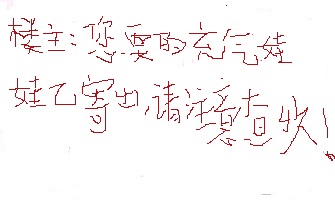 楼主:您要的充气娃
娃乙寄出,请注意查收!